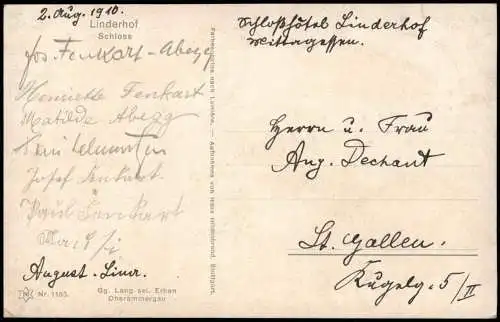 2. Aug. 1910.
Linderhof
Schloss
Jos. Fenkart-Abegg
Henriette Fenkart
Matilde Abegg
Josef Fenkart
Paul Fenkart
August. Linr.
TMK Nr. 1163.
Gg. Lang sel. Erben
Oberammergau
Farbenphotos nach Lumière. — Aufnahmen von Hans Hildenbrand, Stuttgart.
Schloßhôtel Linderhof
Mittagessen.
Herrn u. Frau
Aug. Dechant
St. Gallen.
Kugelg. 5/II